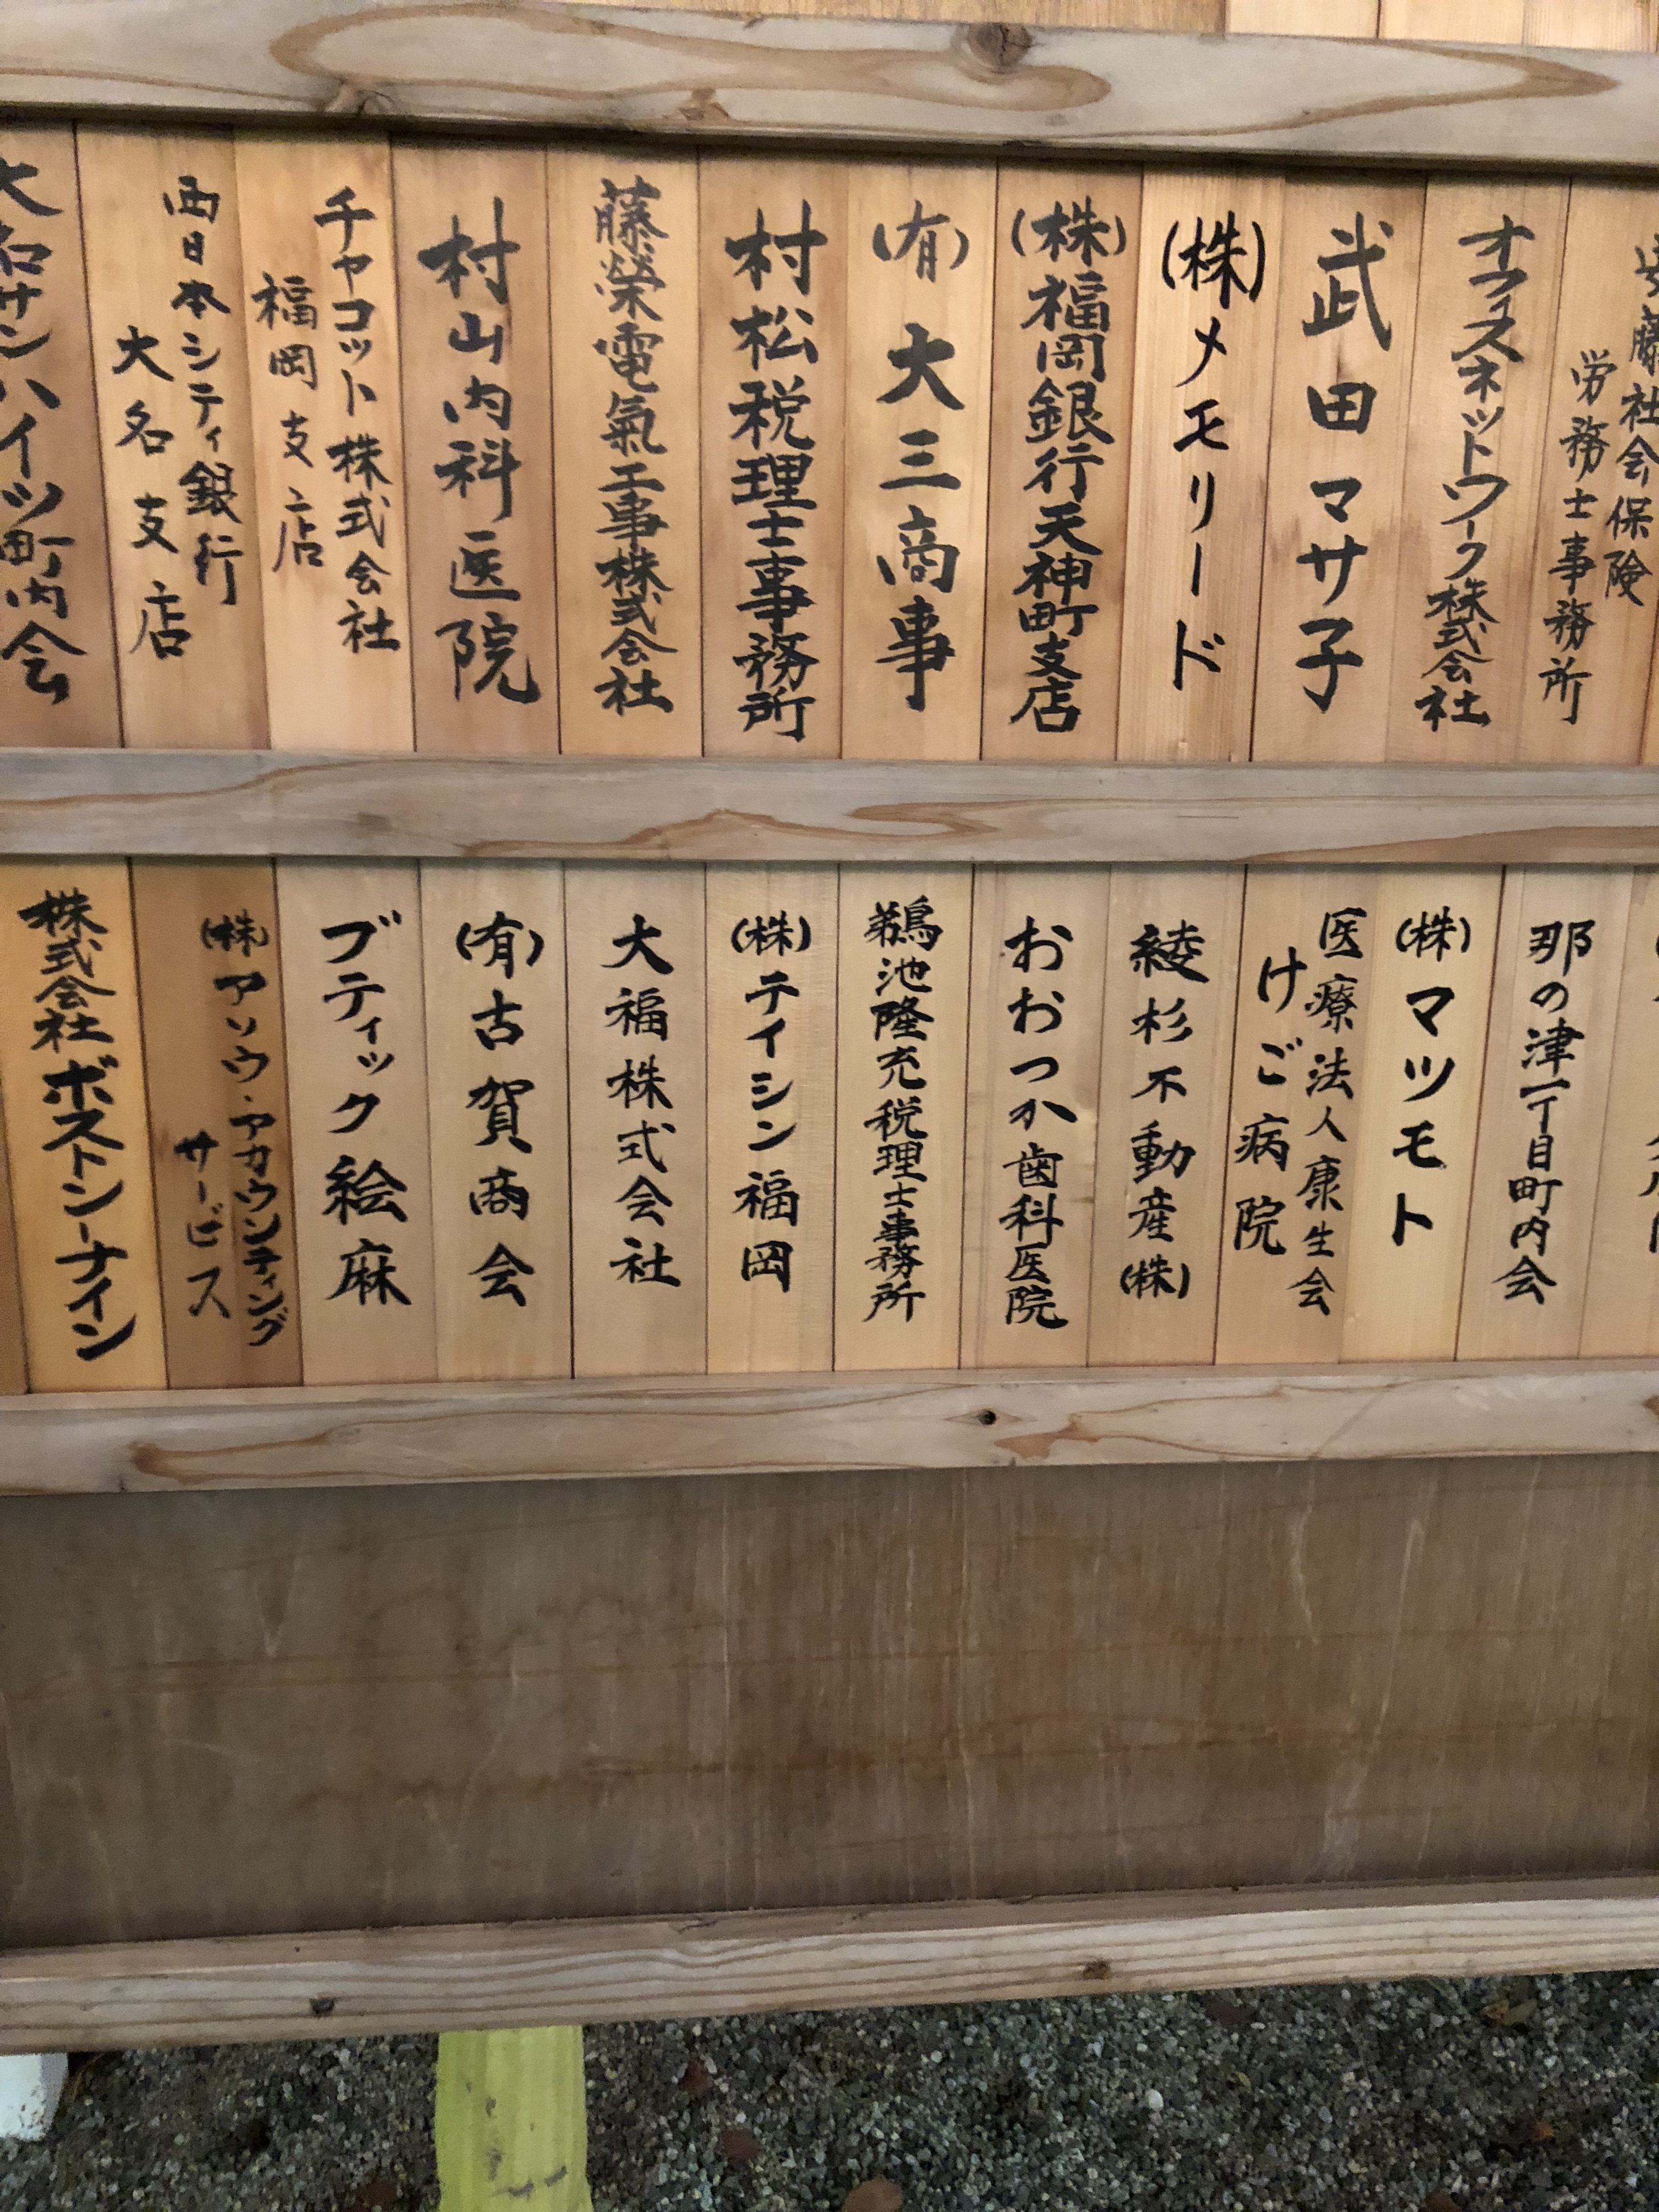 安藤社会保険
労務士事務所
オフィスネットワーク株式会社
武田マサ子
(株)メモリード
(株)福岡銀行天神町支店
(有)大三商事
村松税理士事務所
藤榮電氣工事株式会社
村山内科医院
チャコット株式会社
福岡支店
西日本シティ銀行
大名支店
大名サンハイツ町内会
那の津一丁目町内会
(株)マツモト
医療法人康生会
けご病院
綾杉不動産(株)
おおつか歯科医院
鵜池隆充税理士事務所
(株)テイシン福岡
大福株式会社
(有)古賀商会
ブティック絵麻
(株)アソウ・アカウンティング
サービス
株式会社ボストンーナイン